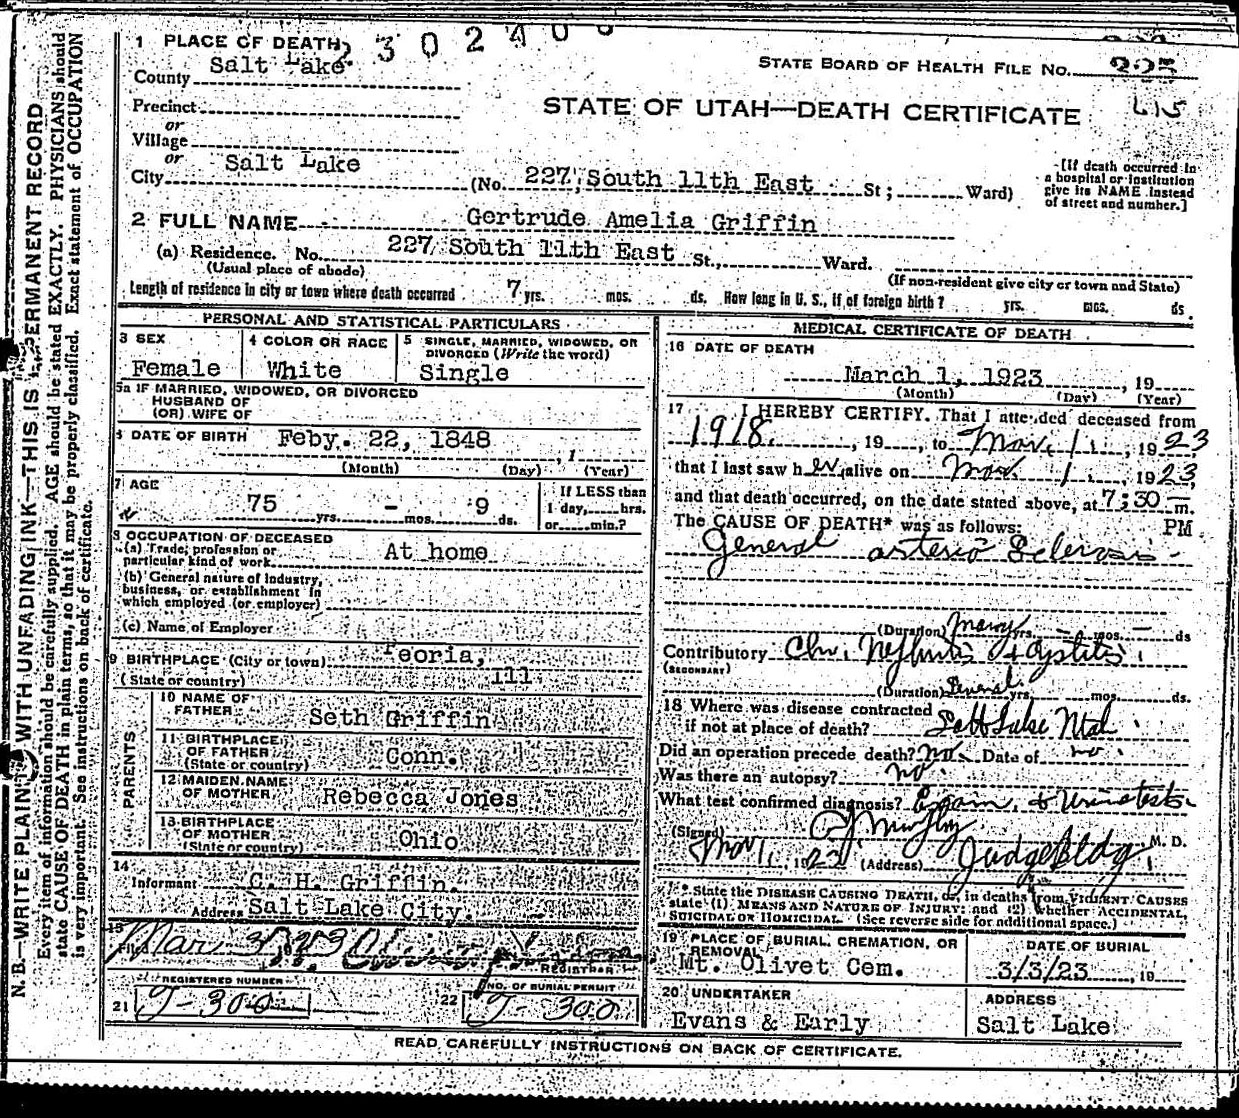 N. B.—WRITE PLAINLY WITH UNFADING INK—THIS IS A PERMANENT RECORD
Every item of information should be carefully supplied. AGE should be stated EXACTLY. PHYSICIANS should
state CAUSE OF DEATH in plain terms, so that it may be properly classified. Exact statement of OCCUPATION
is very important. See instructions on back of certificate.
1 PLACE OF DEATH
2302400
County Salt Lake
STATE BOARD OF HEALTH FILE NO.
Precinct
STATE OF UTAH—DEATH CERTIFICATE
or
Village
or
City Salt Lake
(No. 227, South 11th East St; Ward)
[If death occurred in
a hospital or institution
give its NAME instead
of street and number.]
2 FULL NAME Gertrude Amelia Griffin
(a) Residence. No. 227 South 11th East St., Ward.
(Usual place of abode)
(If non-resident give city or town and State)
Length of residence in city or town where death occurred 7 yrs. mos. ds. How long in U. S., if of foreign birth? yrs. mos. ds.
PERSONAL AND STATISTICAL PARTICULARS
3 SEX
Female
4 COLOR OR RACE
White
5 SINGLE, MARRIED, WIDOWED, OR
DIVORCED (Write the word)
Single
5a IF MARRIED, WIDOWED, OR DIVORCED
HUSBAND OF
(OR) WIFE OF
6 DATE OF BIRTH Feby. 22, 1848, 1
(Month) (Day) (Year)
7 AGE
75 yrs. - mos. 9 ds.
If LESS than
1 day, hrs.
or min.?
8 OCCUPATION OF DECEASED
(a) Trade, profession or
particular kind of work At home
(b) General nature of Industry,
business, or establishment in
which employed (or employer)
(c) Name of Employer
9 BIRTHPLACE (City or town) Peoria,
(State or country) Ill
PARENTS
10 NAME OF
FATHER Seth Griffin
11 BIRTHPLACE
OF FATHER
(State or country) Conn.
12 MAIDEN NAME
OF MOTHER Rebecca Jones
13 BIRTHPLACE
OF MOTHER
(State or country) Ohio
14
Informant C. H. Griffin.
Address Salt Lake City.
15
Filed Mar 3, 1923
REGISTRAR
REGISTERED NUMBER
21 J-300
NO. OF BURIAL PERMIT
22 J-300
MEDICAL CERTIFICATE OF DEATH
16 DATE OF DEATH
March 1, 1923, 19
(Month) (Day) (Year)
17 I HEREBY CERTIFY, That I attended deceased from
1918., 19, to Mar. 1, 1923
that I last saw her alive on Mar. 1, 1923
and that death occurred, on the date stated above, at 7:30 m.
PM
The CAUSE OF DEATH* was as follows:
General arterio Sclerosis
(Duration) Many yrs. - mos. - ds
Contributory Chr. Nephritis + Cystitis
(SECONDARY)
(Duration) Several yrs. mos. ds.
18 Where was disease contracted
if not at place of death? Salt Lake Utah
Did an operation precede death? no Date of no
Was there an autopsy? no.
What test confirmed diagnosis? Exam. & Urine tests
(Signed) M. D.
Mar 1, 1923 (Address) Judge Bldg
* State the DISEASE CAUSING DEATH, or, in deaths from VIOLENT CAUSES
state (1) MEANS AND NATURE OF INJURY; and (2) whether ACCIDENTAL,
SUICIDAL or HOMICIDAL. (See reverse side for additional space.)
19 PLACE OF BURIAL, CREMATION, OR
REMOVAL
Mt. Olivet Cem.
DATE OF BURIAL
3/3/23, 19
20 UNDERTAKER
Evans & Early
ADDRESS
Salt Lake
READ CAREFULLY INSTRUCTIONS ON BACK OF CERTIFICATE.